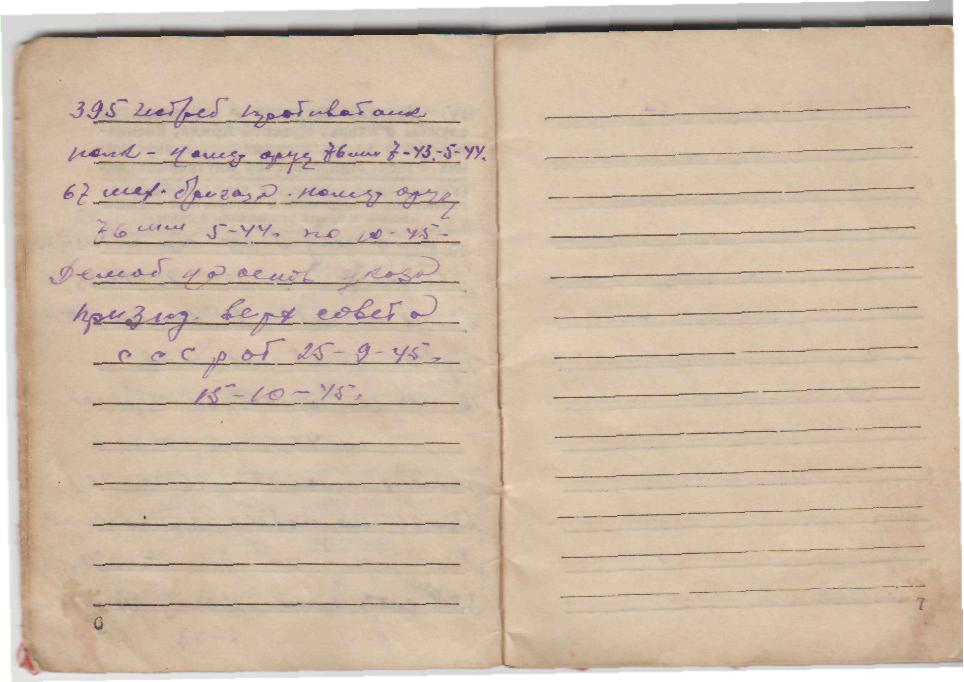 395 истреб противотанк
полк - номер оруд 76 мм 7-43-5-44.
67 мех. бригада. номер оруд
76 мм 5-44. по 10-45-
Демоб на основ указа
призид. верх совета
с с с р от 25-9-45.
15-10-45.
6
7